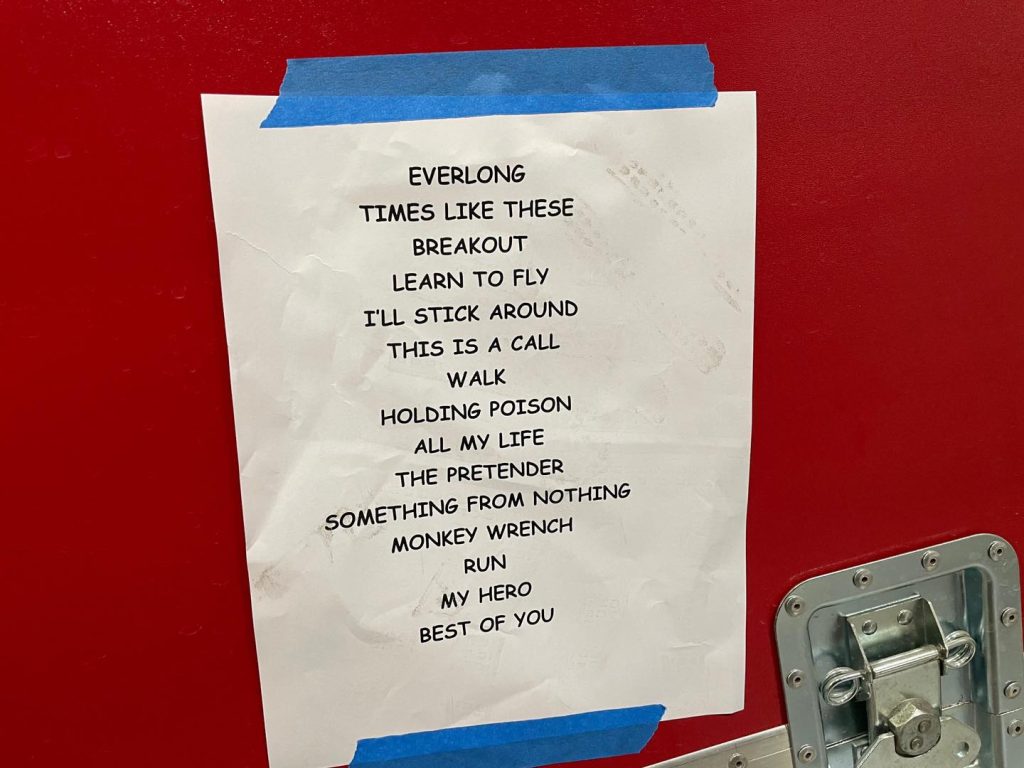 EVERLONG
TIMES LIKE THESE
BREAKOUT
LEARN TO FLY
I'LL STICK AROUND
THIS IS A CALL
WALK
HOLDING POISON
ALL MY LIFE
THE PRETENDER
SOMETHING FROM NOTHING
MONKEY WRENCH
RUN
MY HERO
BEST OF YOU